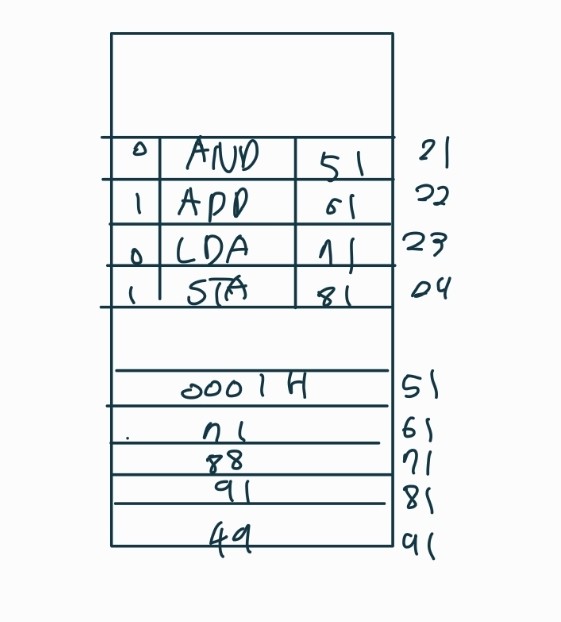 0 AND 51 21
1 ADD 61 22
0 LDA 71 23
1 STA 81 04
0001H 51
71 61
88 71
91 81
49 91